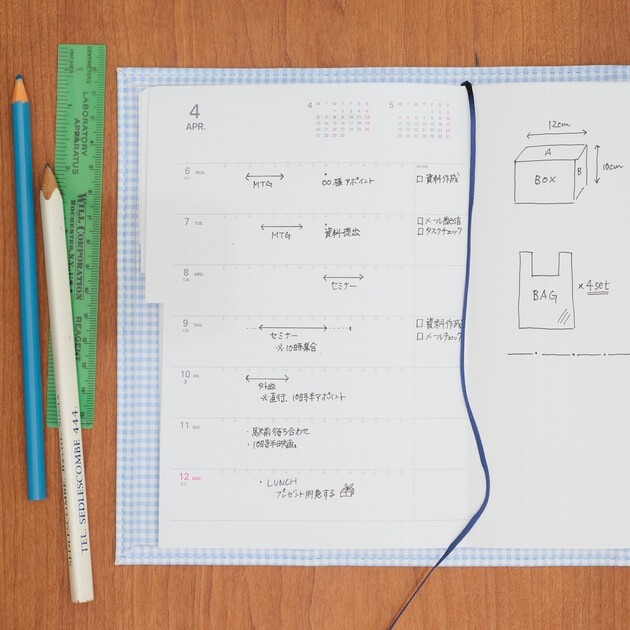 CENTIMETERS
LABORATORY APPARATUS
WILL CORPORATION
ROCHESTER, N.Y.
REAGENT
TEL. SEDLESCOMBE 444.
4
APR.
4
M T W T F S S
5
M T W T F S S
6 MON
MTG
・○○様アポイント
□ 資料作成
7 TUE
MTG
資料提出
□ メール返信
□ タスクチェック
8 WED
セミナー
9 THU
セミナー
※10時集合
□ 資料作成
□ メールチェック
10 FRI
外出
※直行、10時半アポイント
11 SAT
・駅前待ち合わせ
・10時半映画
12 SUN
・LUNCH
プレゼント用意する
12cm
A
BOX
B
10cm
BAG
×4set